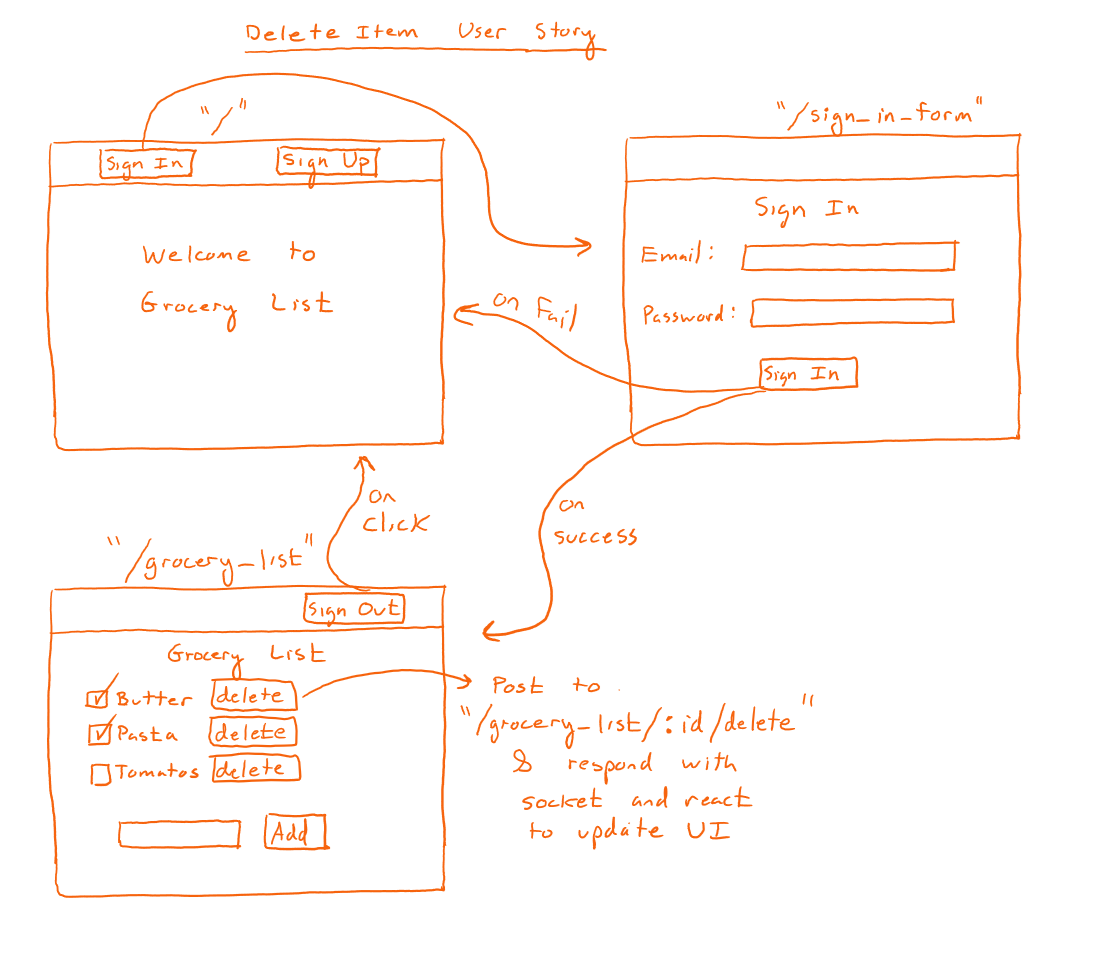 Delete Item User Story
"/"
Sign In Sign Up
Welcome to
Grocery List
"/sign_in_form"
Sign In
Email:
Password:
Sign In
on Fail
on
success
on
click
"/grocery_list"
Sign Out
Grocery List
Butter delete
Pasta delete
Tomatos delete
Add
Post to
"/grocery_list/:id/delete"
& respond with
socket and react
to update UI